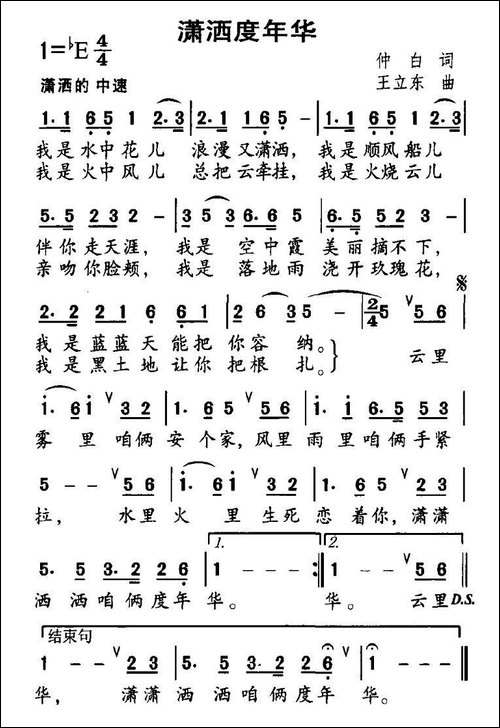 潇洒度年华
1=♭E 4/4
仲 白 词
潇洒的 中速
王立东 曲
1·1 65 1 2·3 | 2·1 615 - | 1·1 65 1 2·3 |
我是水中花儿 浪漫又潇洒, 我是顺风船儿
我是火中风儿 总把云牵挂, 我是火烧云儿
5·5 232 - | 35 3 6·65 | 6·5 512 - |
伴你走天涯, 我是 空中霞 美丽摘不下,
亲吻你脸颊, 我是 落地雨 浇开玫瑰花,
2·2 216 61 | 2 63 5 - | 2/4 5 56 |
我是蓝蓝天能把你容 纳。 云里
我是黑土地让你把根 扎。
1· 61 32 | 1·2 35 56 | 1·1 6·5 53 |
雾 里 咱俩 安 个家,风里 雨里咱俩手紧
5 - - 56 | 1· 61 32 | 1·2 35 23 |
拉, 水里 火 里 生死 恋 着你,潇潇
1. 2.
5· 5 3·2 26 | 1 - - :| 1 - 56
洒 洒咱俩度年 华。 华。 云里D.S.
结束句
1 - - 23 | 5· 5 3·2 26 | 1 - - - |
华, 潇潇 洒 洒咱俩度年 华。